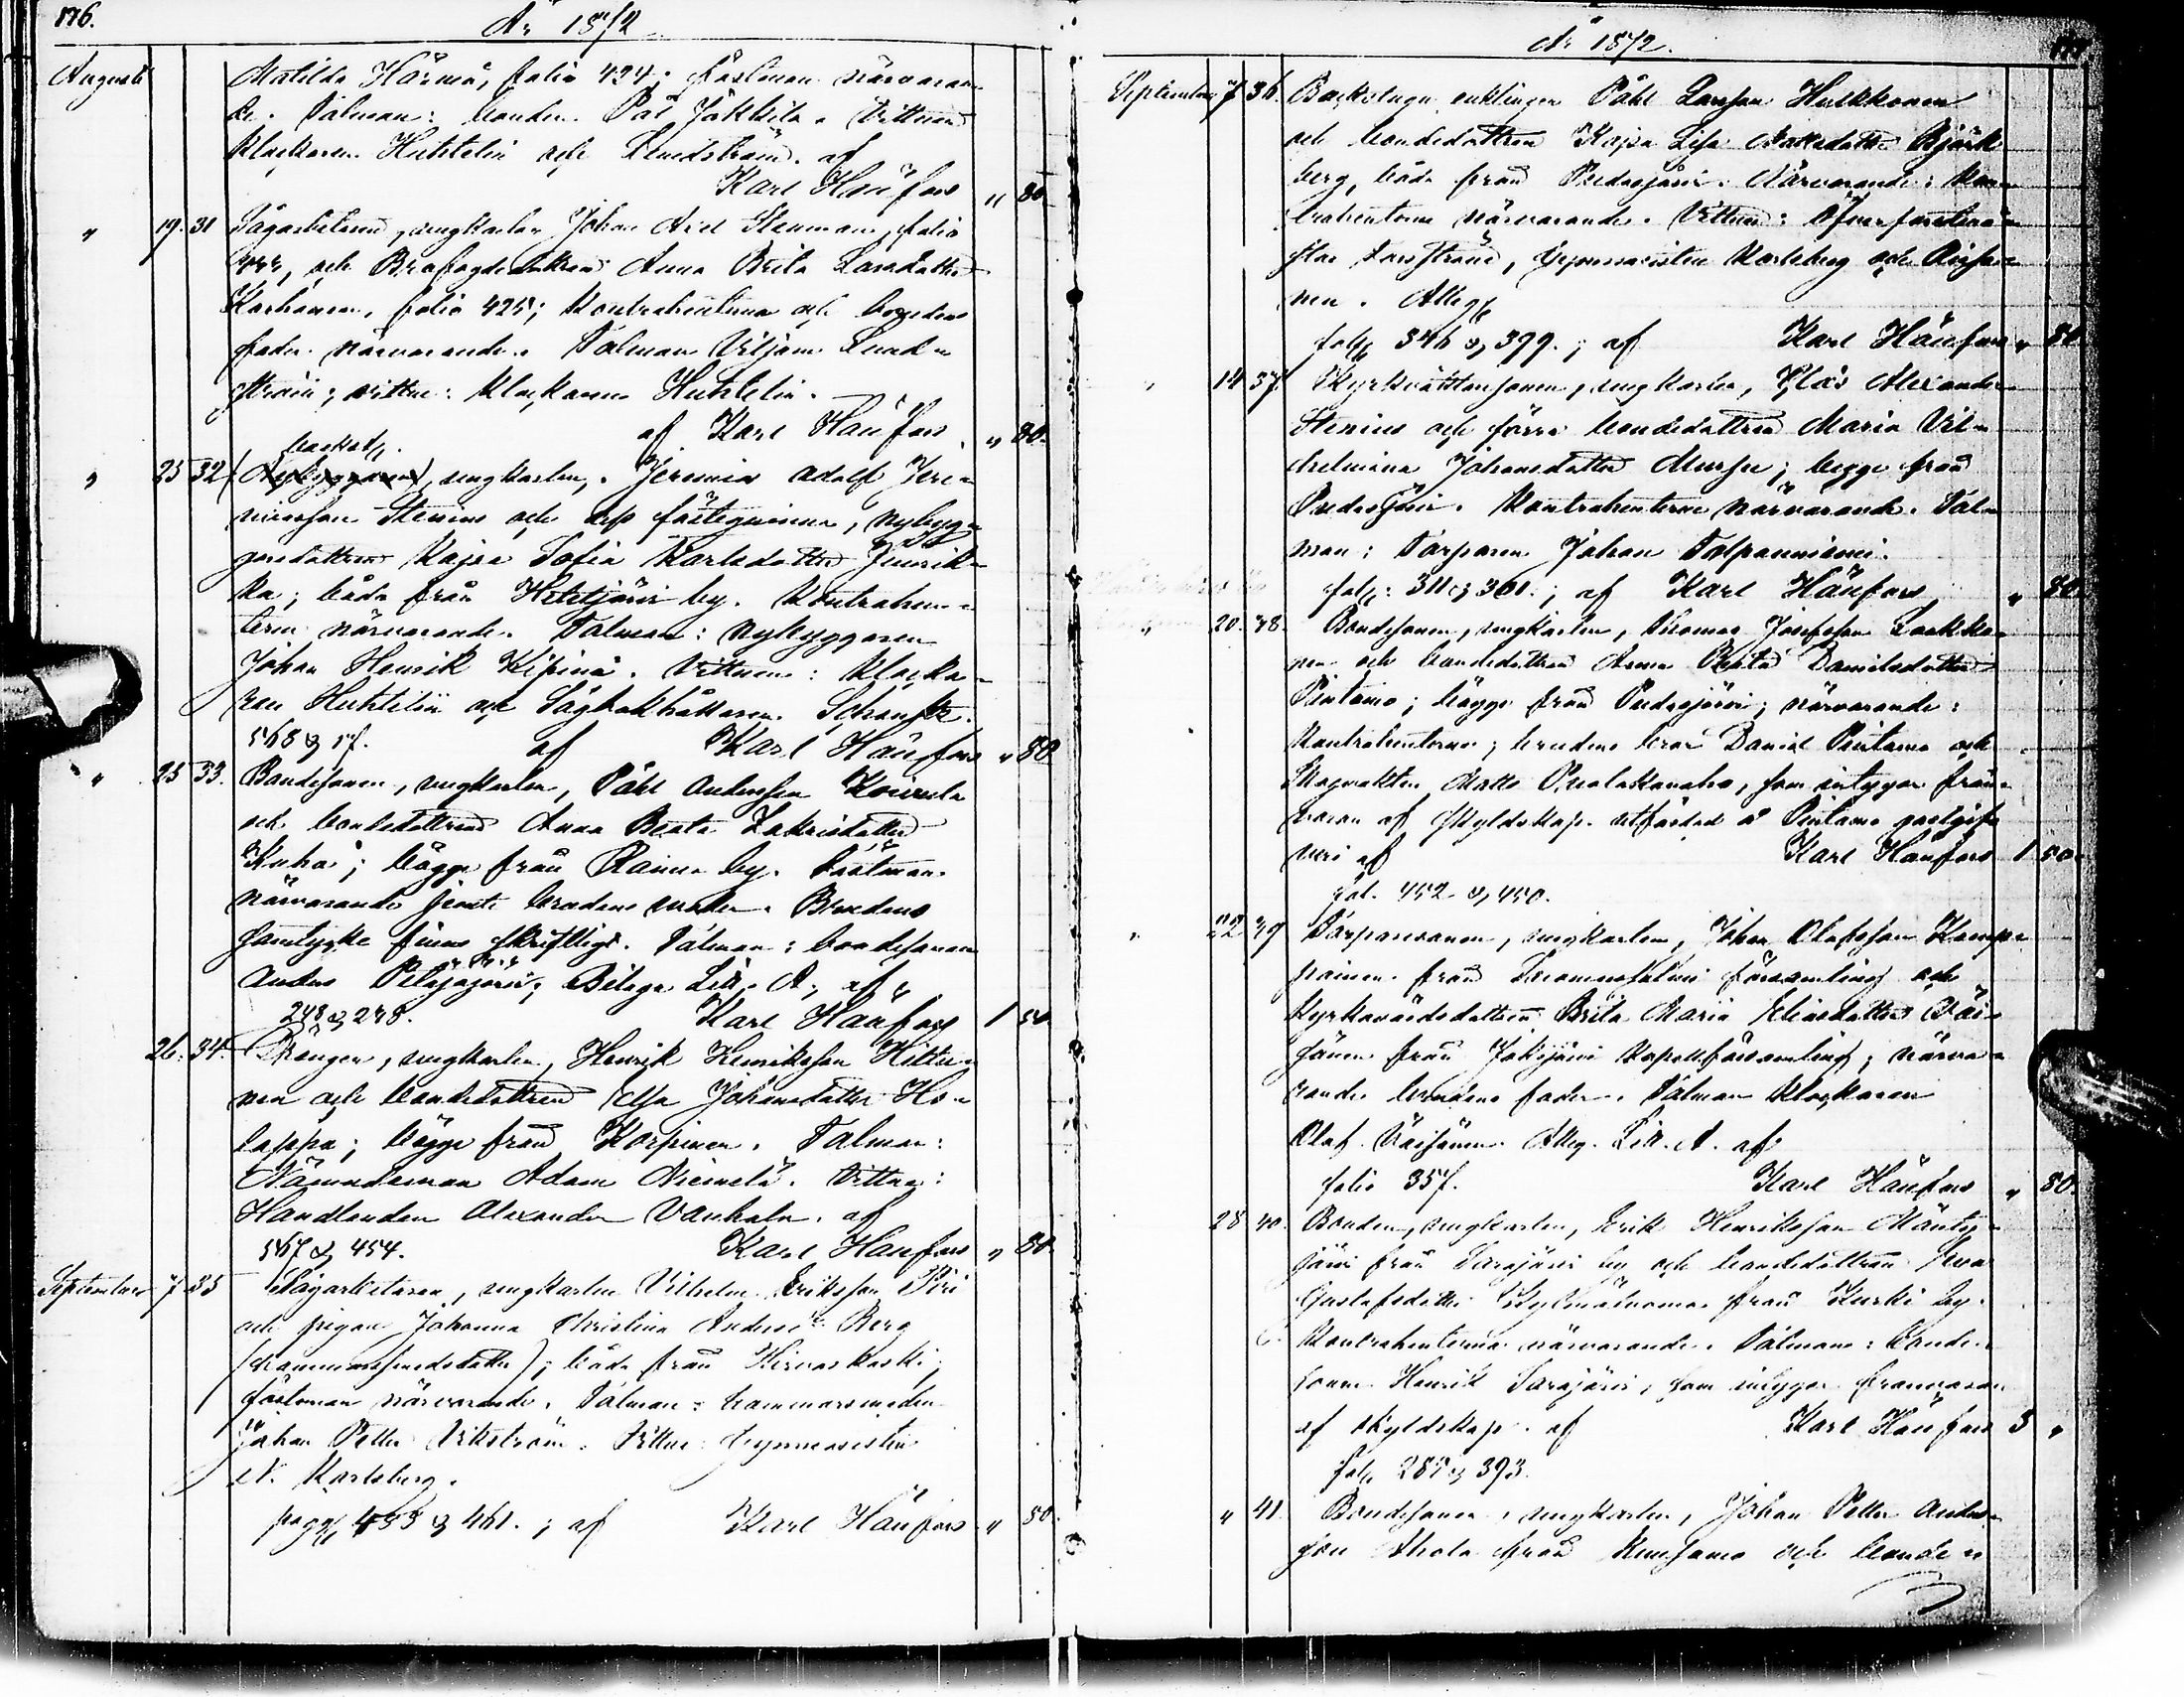 176.
År 1872
Augusti
Matilda Härmä, folio 424; fästman närvaran-
de. Talman: bonden Pål Jäkkilä. Vittnen
klockaren Huhtelin och Lundström. af
Karl Hänfors " 80
" 19. 31 Sågarbetaren, ungkarlen Johan Axel Stenman, folio
och Brofogdedottren Anna Brita Larsdotter
Karhonen, folio 425; Kontrahenterna och brudens
fader närvarande. Talman Viljam Lund-
ström; vittne: klockaren Huhtelin.
af Karl Hänfors " 80.
backst.
" 25 32 (Nybyggaren), ungkarlen, Jeremia Adolf Jere-
miasson Stenius och dess fästeqvinna, nybyg-
garedottren Kajsa Sofia Karlsdotter Jumik-
ka; båda från Hetejärvi by. Kontrahen-
terna närvarande. Talman: nybyggaren
Johan Henrik Kipinä. Vittnen: klocka-
ren Huhtelin och Sågbokhållaren
568 & 17. af Karl Hänfors " 80
" 25 33. Bondesonen, ungkarlen, Påhl Andersson Koivula
och bondedottren Anna Beata Zakrisdotter
Kuha; bägge från Ranua by. Fästman
närvarande jemte brudens moder. Brudens
samtycke finns skriftligt. Talman: bondesonen
Anders Petäjäjärvi; Bilaga Litt. A, af
248 & 248. Karl Hänfors 1 50
26. 34. Drängen, ungkarlen, Henrik Henriksson Hiltu-
nen och bondedottren Elsa Johansdotter Ho-
lappa; bägge från Korpinen. Talman:
Nämndeman Adam Niemelä. Vittne:
Handlanden Alexander Vanhala. af
567 & 454. Karl Hänfors " 80.
September 7 35 Sågarbetaren, ungkarlen Vilhelm Eriksson Piri
och pigan Johanna Christina Andersdr Berg
(hammarsmedsdotter); båda från Hirvaskoski;
fästman närvarande. Talman: hammarsmeden
Johan Petter Vikström. Vittne: Gymnasisten
N. Karlsberg.
pagg 455 & 461.; af Karl Hänfors " 80.
År 1872.
177.
September 7 36. Backstugu enklingen Påhl Larsson Hulkkonen
och bondedottren Kajsa Lisa Matsdotter Björk-
berg, båda från Pudasjärvi. Närvarande: Kon-
trahenterna närvarande. Vittnen: Öfverforstmä-
star Karsström, Gymnasisten Karlsberg och
nen. Atteg
fol 346 & 399.; af Karl Hänfors " 80
" 14 37. Kyrkvaktarsonen, ungkarlen, Klas Alexander
Stenius och förra bondedottren Maria Vil-
helmina Johansdotter Mursu; begge från
Pudasjärvi. Kontrahenterna närvarande. Tal-
man: Torparen Johan Tolpanniemi.
fol: 311 & 361.; af Karl Hänfors " 80.
" 20. 38. Bondesonen, ungkarlen, Thomas Josefsson Laakko-
nen och bondedottren Anna Brita Danielsdotter
Pintamo; bägge från Pudasjärvi; närvarande:
Kontrahenterna; brudens bror Daniel Pintamo och
Skogvakten Matts Puolakanaho, som intygar från-
varon af skyldskap. utfärdad å Pintamo gästgif-
veri af Karl Hänfors 1 50.
fol. 452 & 450.
" 22 39 Torparesonen, ungkarlen, Johan Olofsson Kemp-
painen från Suomussalmi församling och
kyrkovärdsdottren Brita Maria Eliasdotter Väi-
sänen från Jokijärvi kapellförsamling; närva-
rande brudens fader. Talman klockaren
Olof Väisänen. Atteg. Litt. A. af
folio 357. Karl Hänfors " 80.
28 40. Bonden, ungkarlen, Erik Henriksson Mänty-
järvi från Sarajärvi by och bondedottren Eva
Gustafsdotter Kylmäluoma från Kurki by.
Kontrahenterna närvarande. Talman: Bonde-
sonen Henrik Sarajärvi, som intygar frånvaron
af skyldskap. af Karl Hänfors 3 "
fol 287 & 393.
" 41 Bondesonen, ungkarlen, Johan Petter Anders-
son Ahola från Kuusamo och bonde-